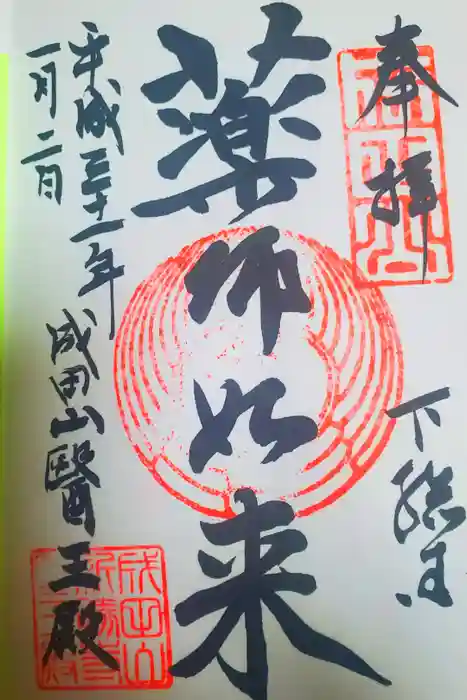 奉拝
下総国
薬師如来
平成三十一年
一月二日
成田山醫王殿
成田山